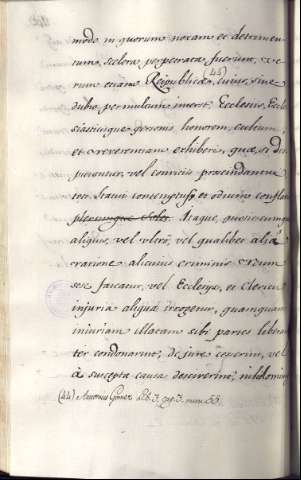 modo in quorum noxam et detrimen-
tum, scelera perpetrata fuerint, ve-
rum etiam Reipublicæ, (43) cuius, sine
dubio permultum interest, Ecclesiis, Eccle
siasticisque personis honorem, cultum,
et reverentiam exhiberi, quæ, si de
vel conviciis
tur, Statui contemptus, et odium conflari
plerumque solet. Itaque, quotiescumq
aliquis, vel ultro, vel qualibet aliâ
ratione alicuius criminis reum
sese fateatur, vel Ecclesiis, et Clericis
injuria aliqua irrogetur, quamquam
iniuriam illatam sibi partes
ter condonarint, de jure cesserint, vel
à suscepta causa destiterint, nihilomin
(44) Antonius Gomez lib. 3. cap. 3. num. 55.